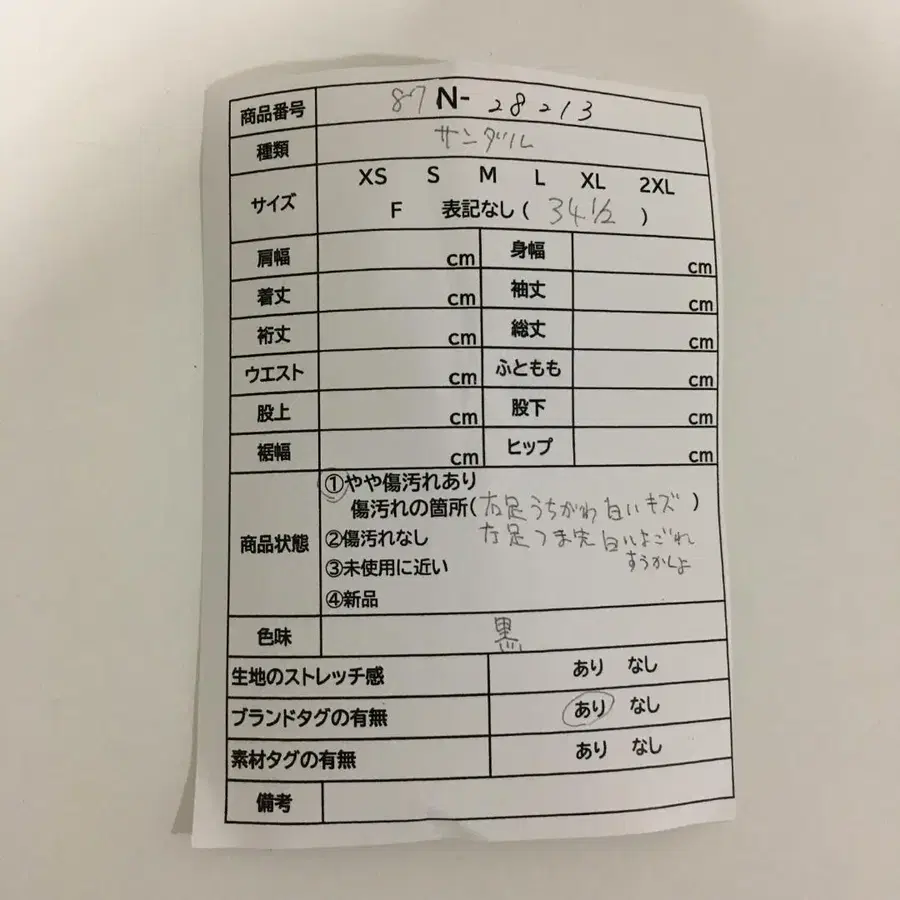 商品番号 87 N- 28213
種類 サンダル
サイズ XS S M L XL 2XL
F 表記なし( 34 1/2 )
肩幅 cm 身幅 cm
着丈 cm 袖丈 cm
裄丈 cm 総丈 cm
ウエスト cm ふともも cm
股上 cm 股下 cm
裾幅 cm ヒップ cm
商品状態 ①やや傷汚れあり
傷汚れの箇所(右足うちがわ 白いキズ )
②傷汚れなし 右足つま先 白いよごれ
すうかしょ
③未使用に近い
④新品
色味 黒
生地のストレッチ感 あり なし
ブランドタグの有無 あり なし
素材タグの有無 あり なし
備考